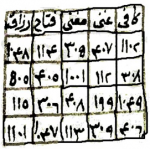 كافي غني مغني فتاح رزاق
١١٠٢ ٤٠٧ ٣٠٩ ١١٤ ١٠٤٨
٣٠٨ ١١٢ ١٠٠١ ٤٠٥ ٨٠٥
١٠٤٩ ١٩٩ ٤٠٨ ٣٠٦ ١١٠
٤٠٦ ٣٠٩ ١١٣ ١٠٤٧ ١١٠١